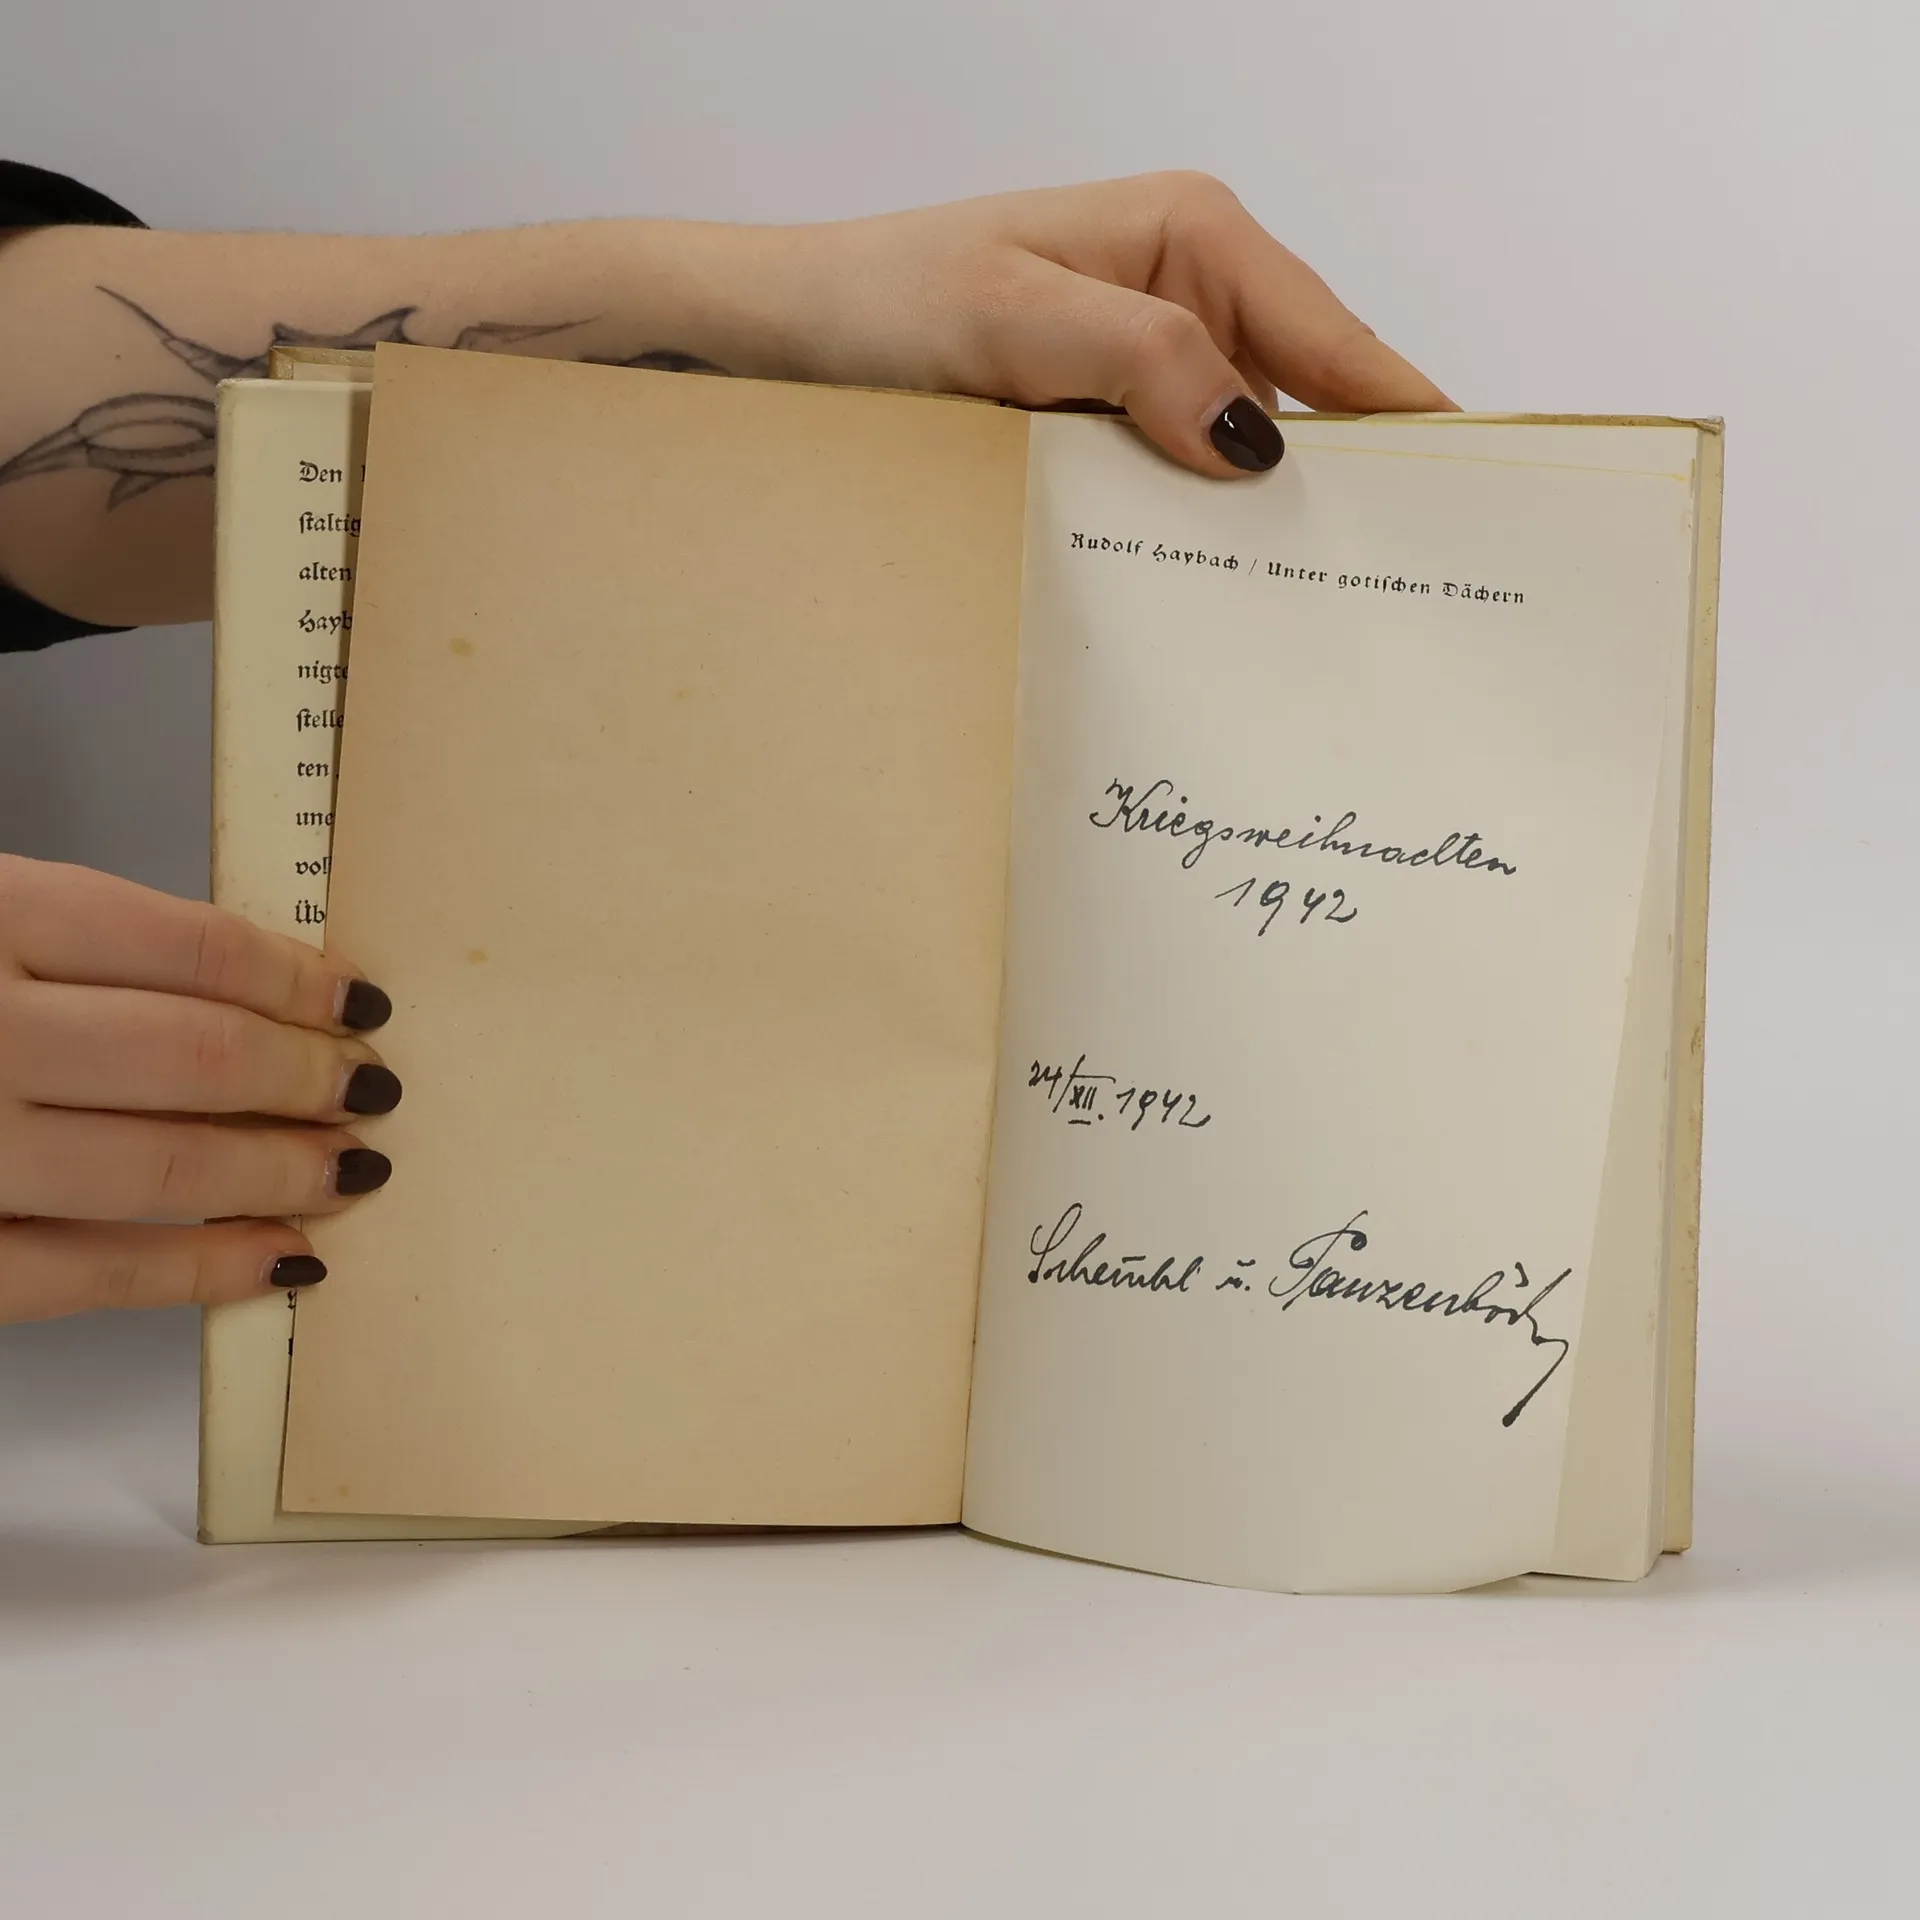 Den
ſtaltig
alten
Hayb
nigte
ſtelle
ten
une
voll
Üb
Rudolf Haybach / Unter gotiſchen Dächern
Kriegsweihnachten
1942
24/XII. 1942
u.